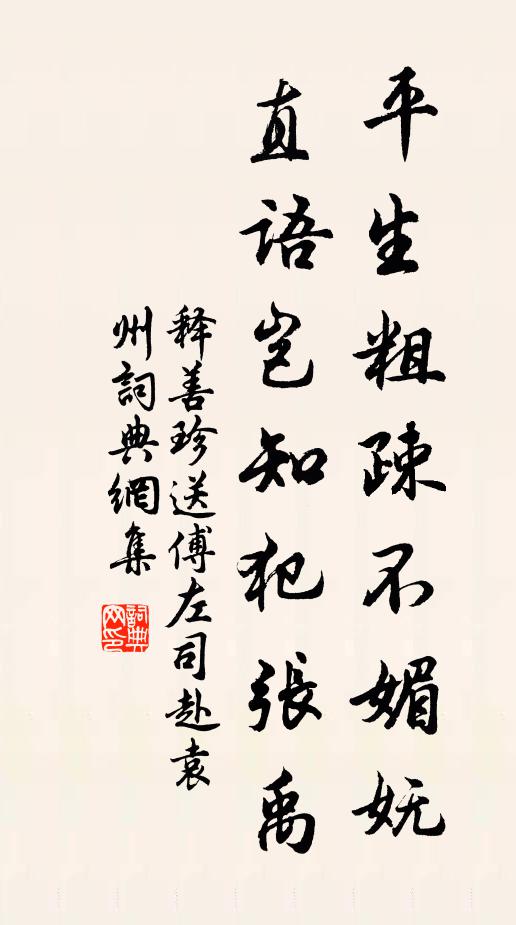 平生粗疎不媚妩
直語岂知犯張禹
释善珍送傅左司赴袁
州詞典網集
詞典網印